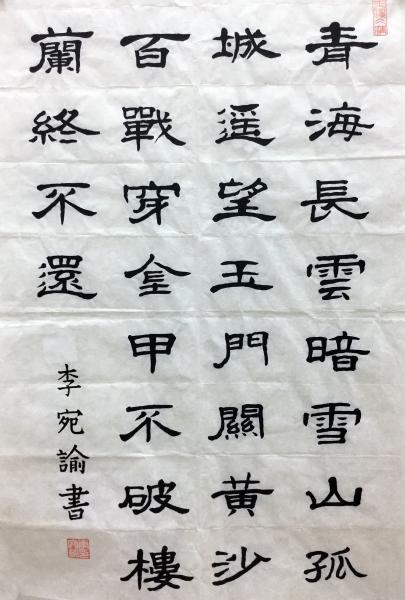 青海長雲暗雪山孤
城遥望玉門關黄沙
百戰穿金甲不破樓
蘭終不還
李宛諭書